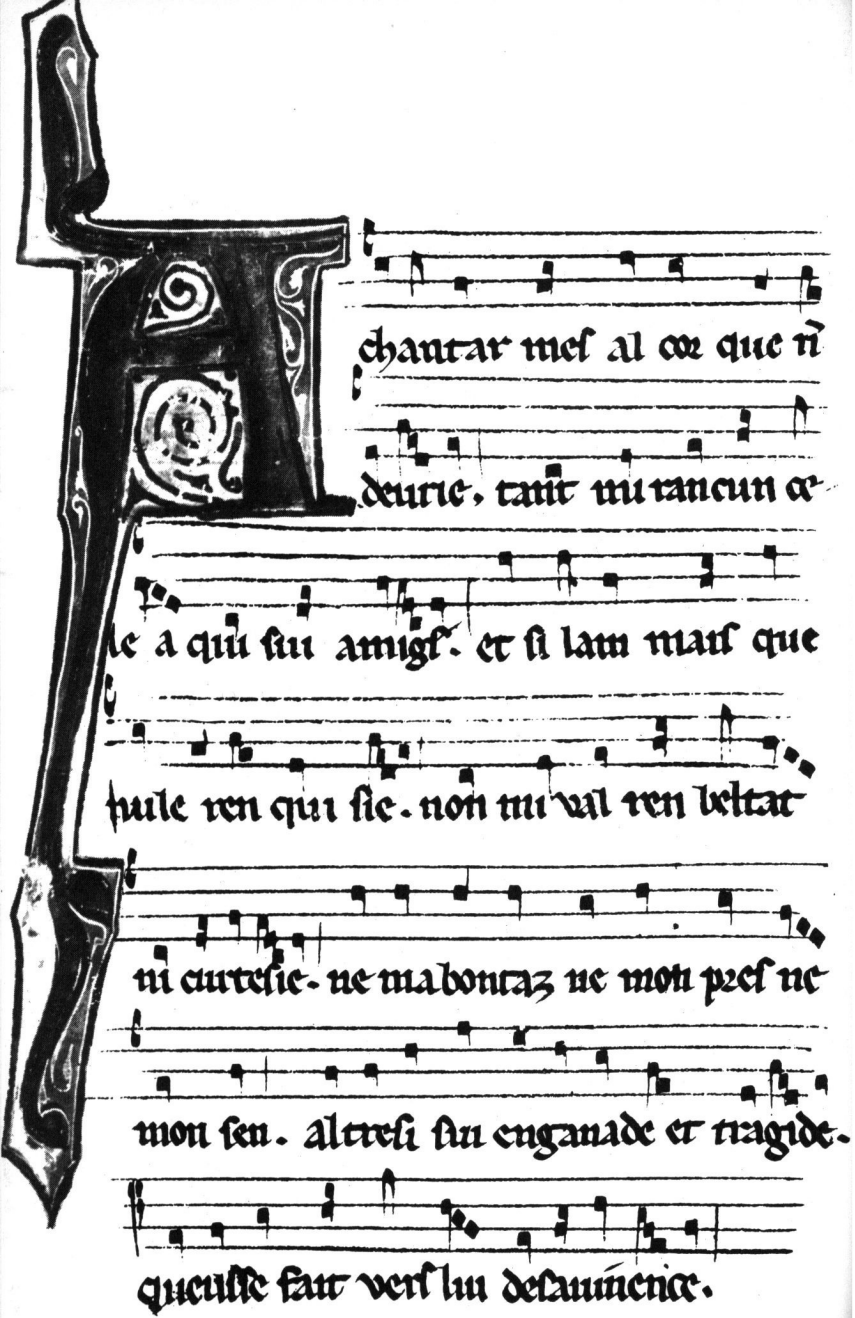 A chantar mes al cor que n̄
deurie. tant mi rancun ce
le a qui sui amigs. et si lam mais que
nule ren qui sie. non mi val ren beltat
ni curtesie. ne ma bontaz ne mon pres ne
mon sen. altresi sui enganade et tragide.
queusse fait vers lui desavinence.